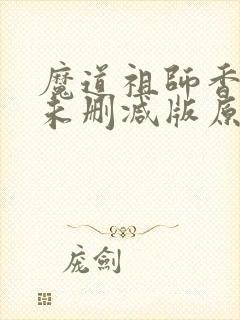 魔道祖師香
未刪減版原
庞劍